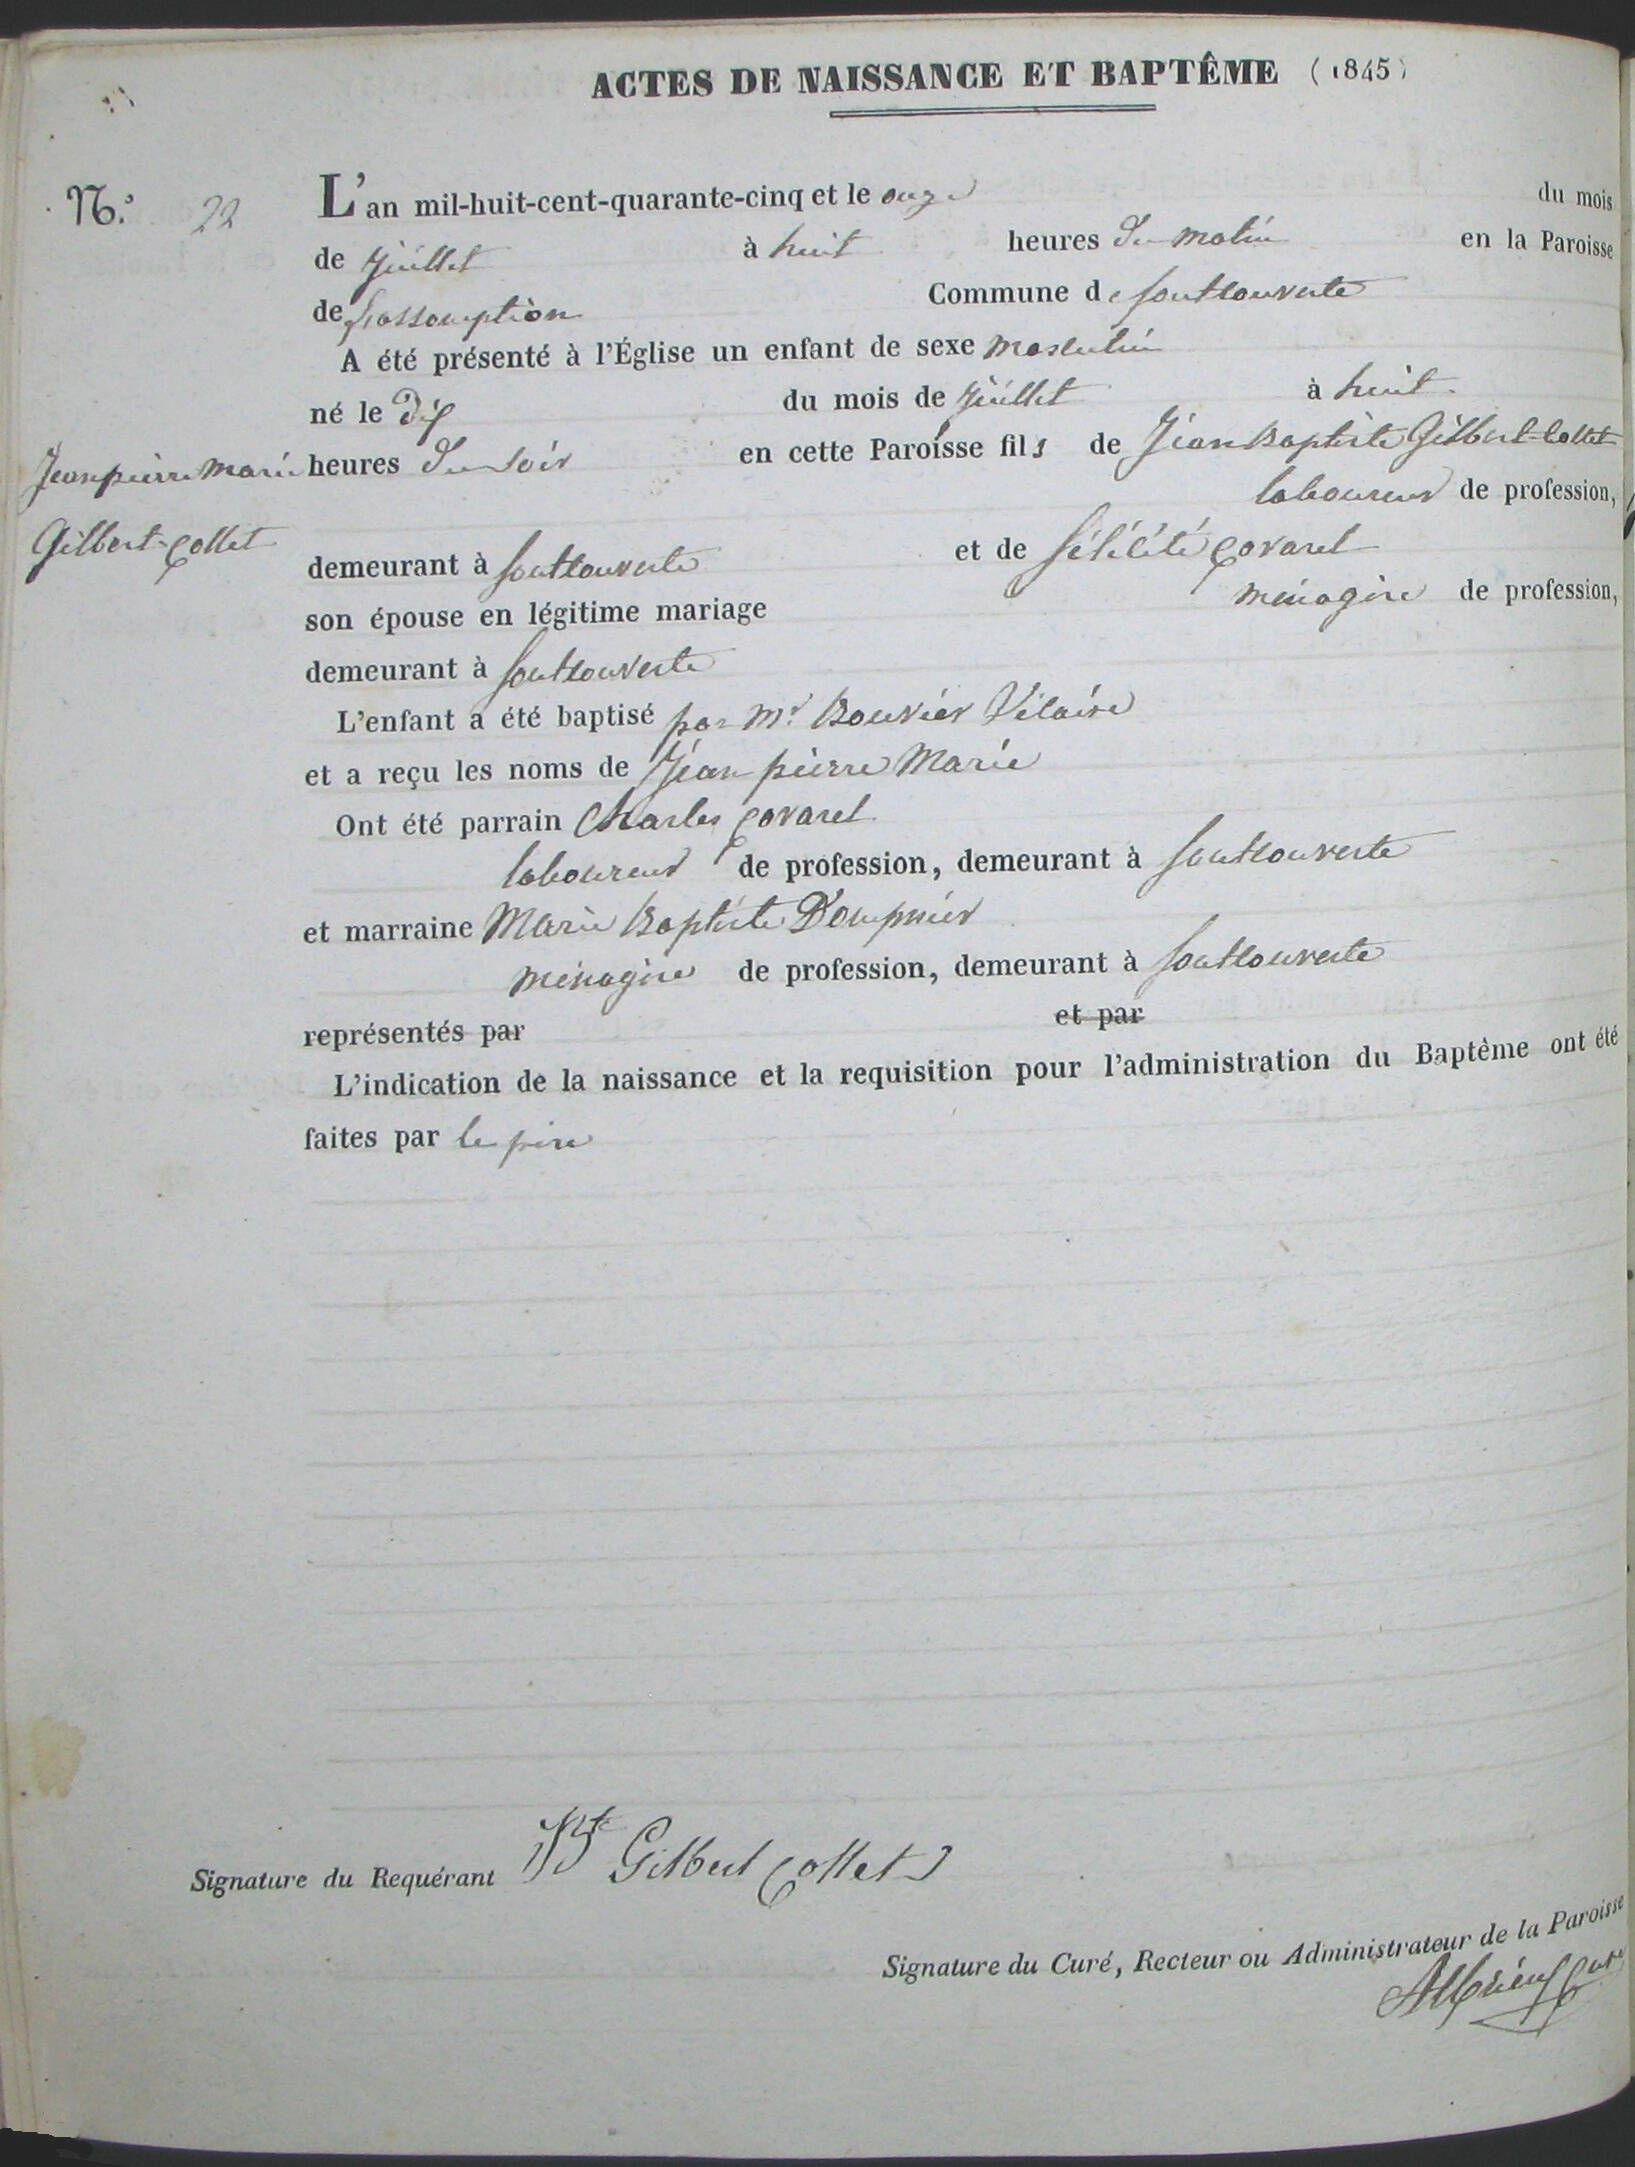 ACTES DE NAISSANCE ET BAPTÊME (1845)
N.º 22
L'an mil-huit-cent-quarante-cinq et le onze du mois
de juillet à huit heures du matin en la Paroisse
de Commune de fontcouverte
A été présenté à l'Église un enfant de sexe masculin
né le dix du mois de juillet à huit
heures du soir en cette Paroisse fils de Jean Baptiste Gilbert-Collet
laboureur de profession,
Jean pierre marie
Gilbert-Collet
demeurant à fontcouverte et de félicité Covarel
son épouse en légitime mariage ménagère de profession,
demeurant à fontcouverte
L'enfant a été baptisé par Mr Bouvier
et a reçu les noms de Jean pierre Marie
Ont été parrain Charles Covarel
laboureur de profession, demeurant à fontcouverte
et marraine Marie Baptiste Dompnier
ménagère de profession, demeurant à fontcouverte
représentés par et par
L'indication de la naissance et la requisition pour l'administration du Baptême ont été
faites par le père
Signature du Requérant Gilbert Collet
Signature du Curé, Recteur ou Administrateur de la Paroisse